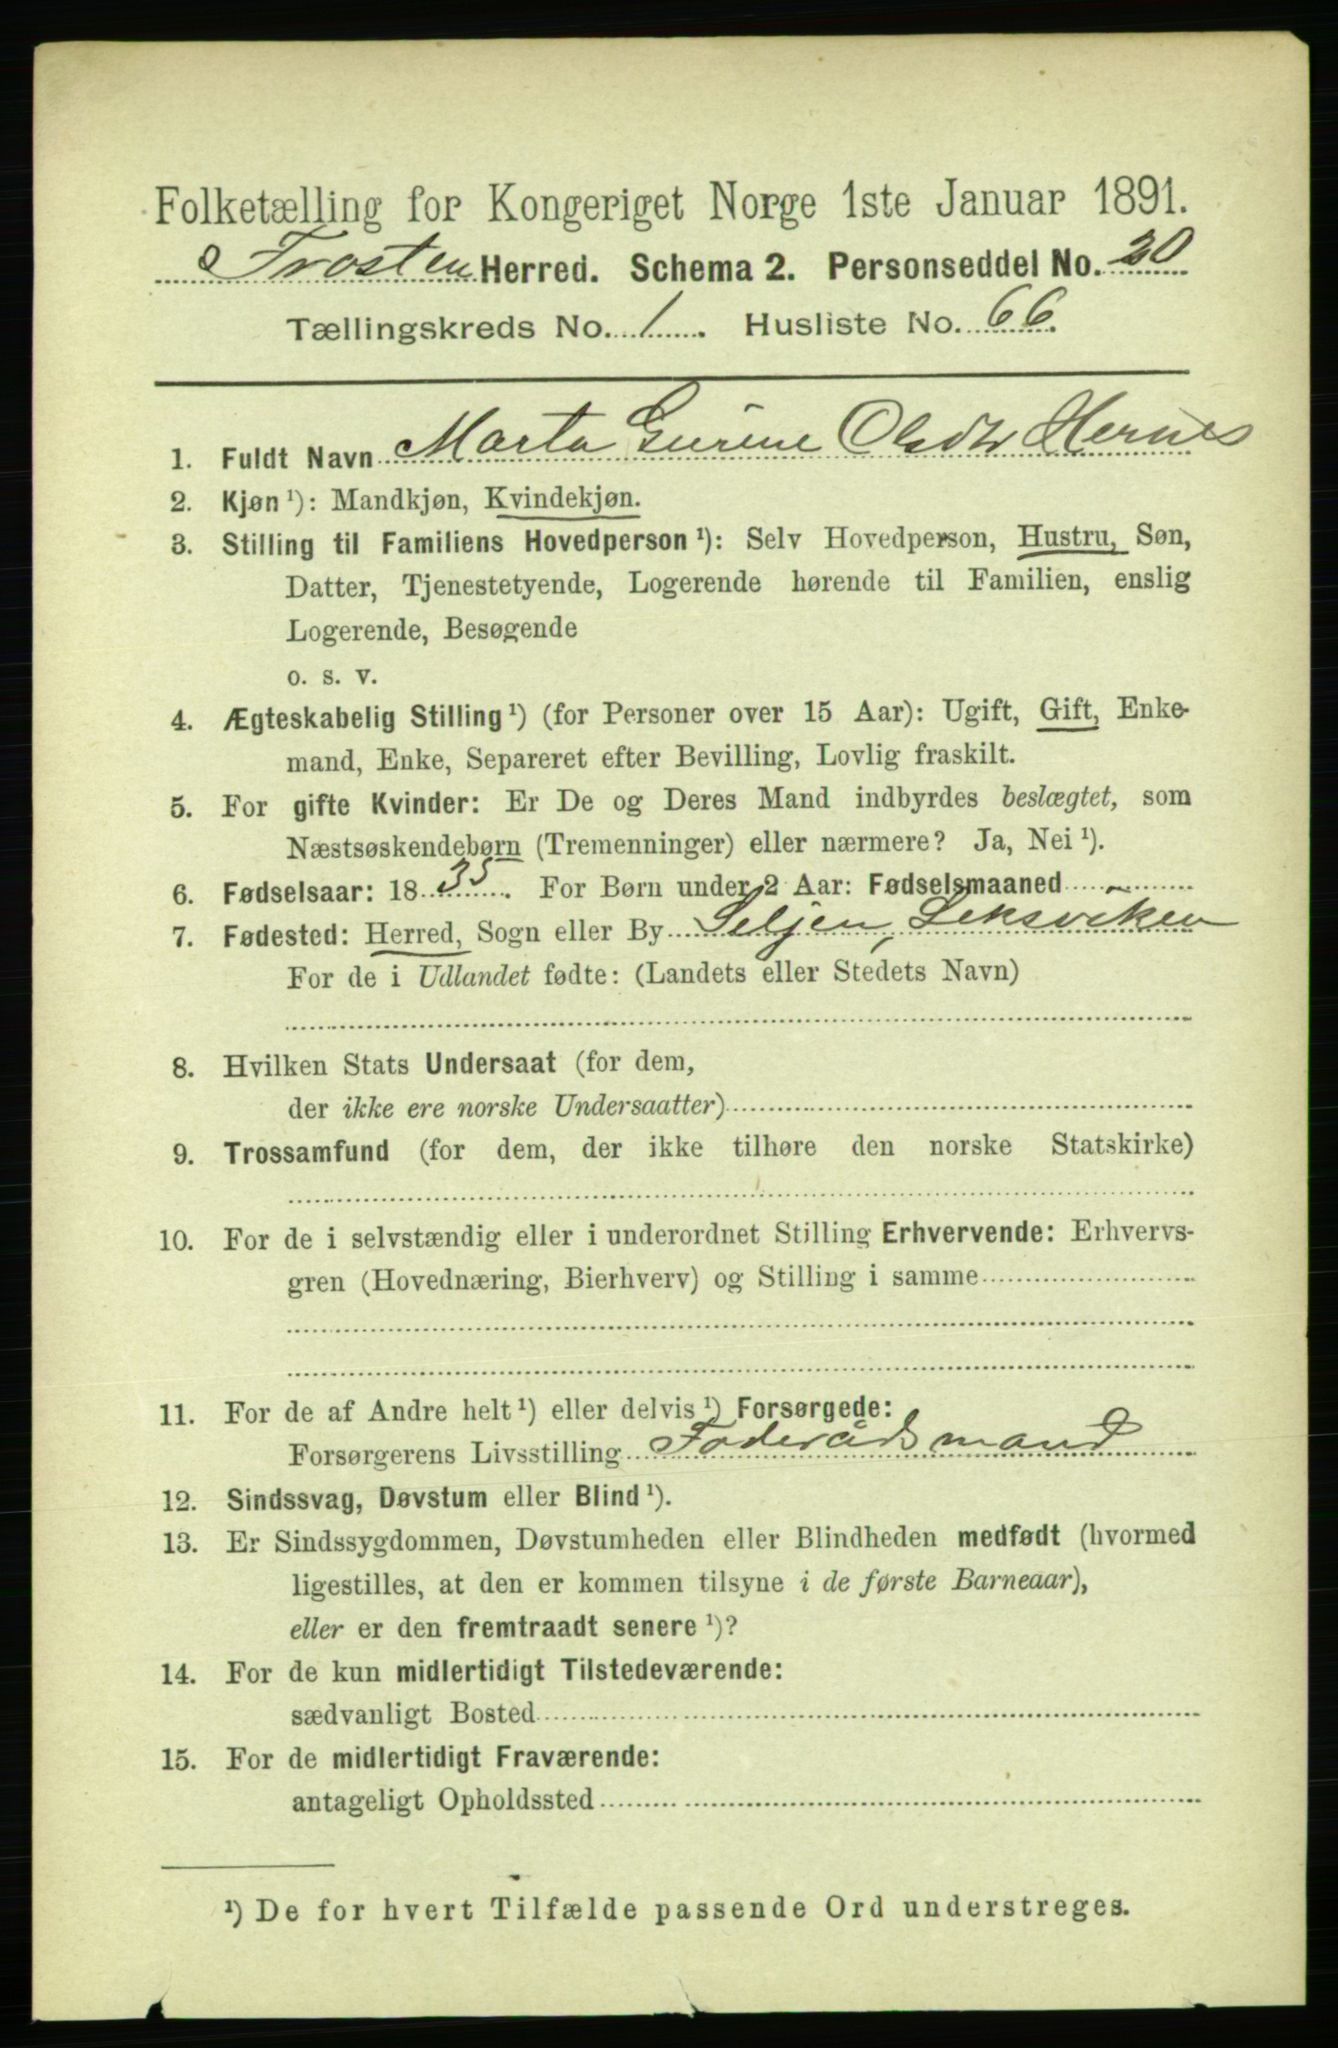 Folketælling for Kongeriget Norge 1ste Januar 1891.
Frosten Herred. Schema 2. Personseddel No. 20
Tællingskreds No. 1. Husliste No. 66.
1. Fuldt Navn Marta Gurine Olsdtr Hernes
2. Kjøn ¹): Mandkjøn, Kvindekjøn.
3. Stilling til Familiens Hovedperson ¹): Selv Hovedperson, Hustru, Søn,
Datter, Tjenestetyende, Logerende hørende til Familien, enslig
Logerende, Besøgende
o. s. v.
4. Ægteskabelig Stilling ¹) (for Personer over 15 Aar): Ugift, Gift, Enke-
mand, Enke, Separeret efter Bevilling, Lovlig fraskilt.
5. For gifte Kvinder: Er De og Deres Mand indbyrdes beslægtet, som
Næstsøskendebørn (Tremenninger) eller nærmere? Ja, Nei ¹).
6. Fødselsaar: 1835. For Børn under 2 Aar: Fødselsmaaned
7. Fødested: Herred, Sogn eller By Seljen, Leksviken
For de i Udlandet fødte: (Landets eller Stedets Navn)
8. Hvilken Stats Undersaat (for dem,
der ikke ere norske Undersaatter)
9. Trossamfund (for dem, der ikke tilhøre den norske Statskirke)
10. For de i selvstændig eller i underordnet Stilling Erhvervende: Erhvervs-
gren (Hovednæring, Bierhverv) og Stilling i samme
11. For de af Andre helt ¹) eller delvis ¹) Forsørgede:
Forsørgerens Livsstilling Foderådsmand
12. Sindssvag, Døvstum eller Blind ¹).
13. Er Sindssygdommen, Døvstumheden eller Blindheden medfødt (hvormed
ligestilles, at den er kommen tilsyne i de første Barneaar),
eller er den fremtraadt senere ¹)?
14. For de kun midlertidigt Tilstedeværende:
sædvanligt Bosted
15. For de midlertidigt Fraværende:
antageligt Opholdssted
¹) De for hvert Tilfælde passende Ord understreges.